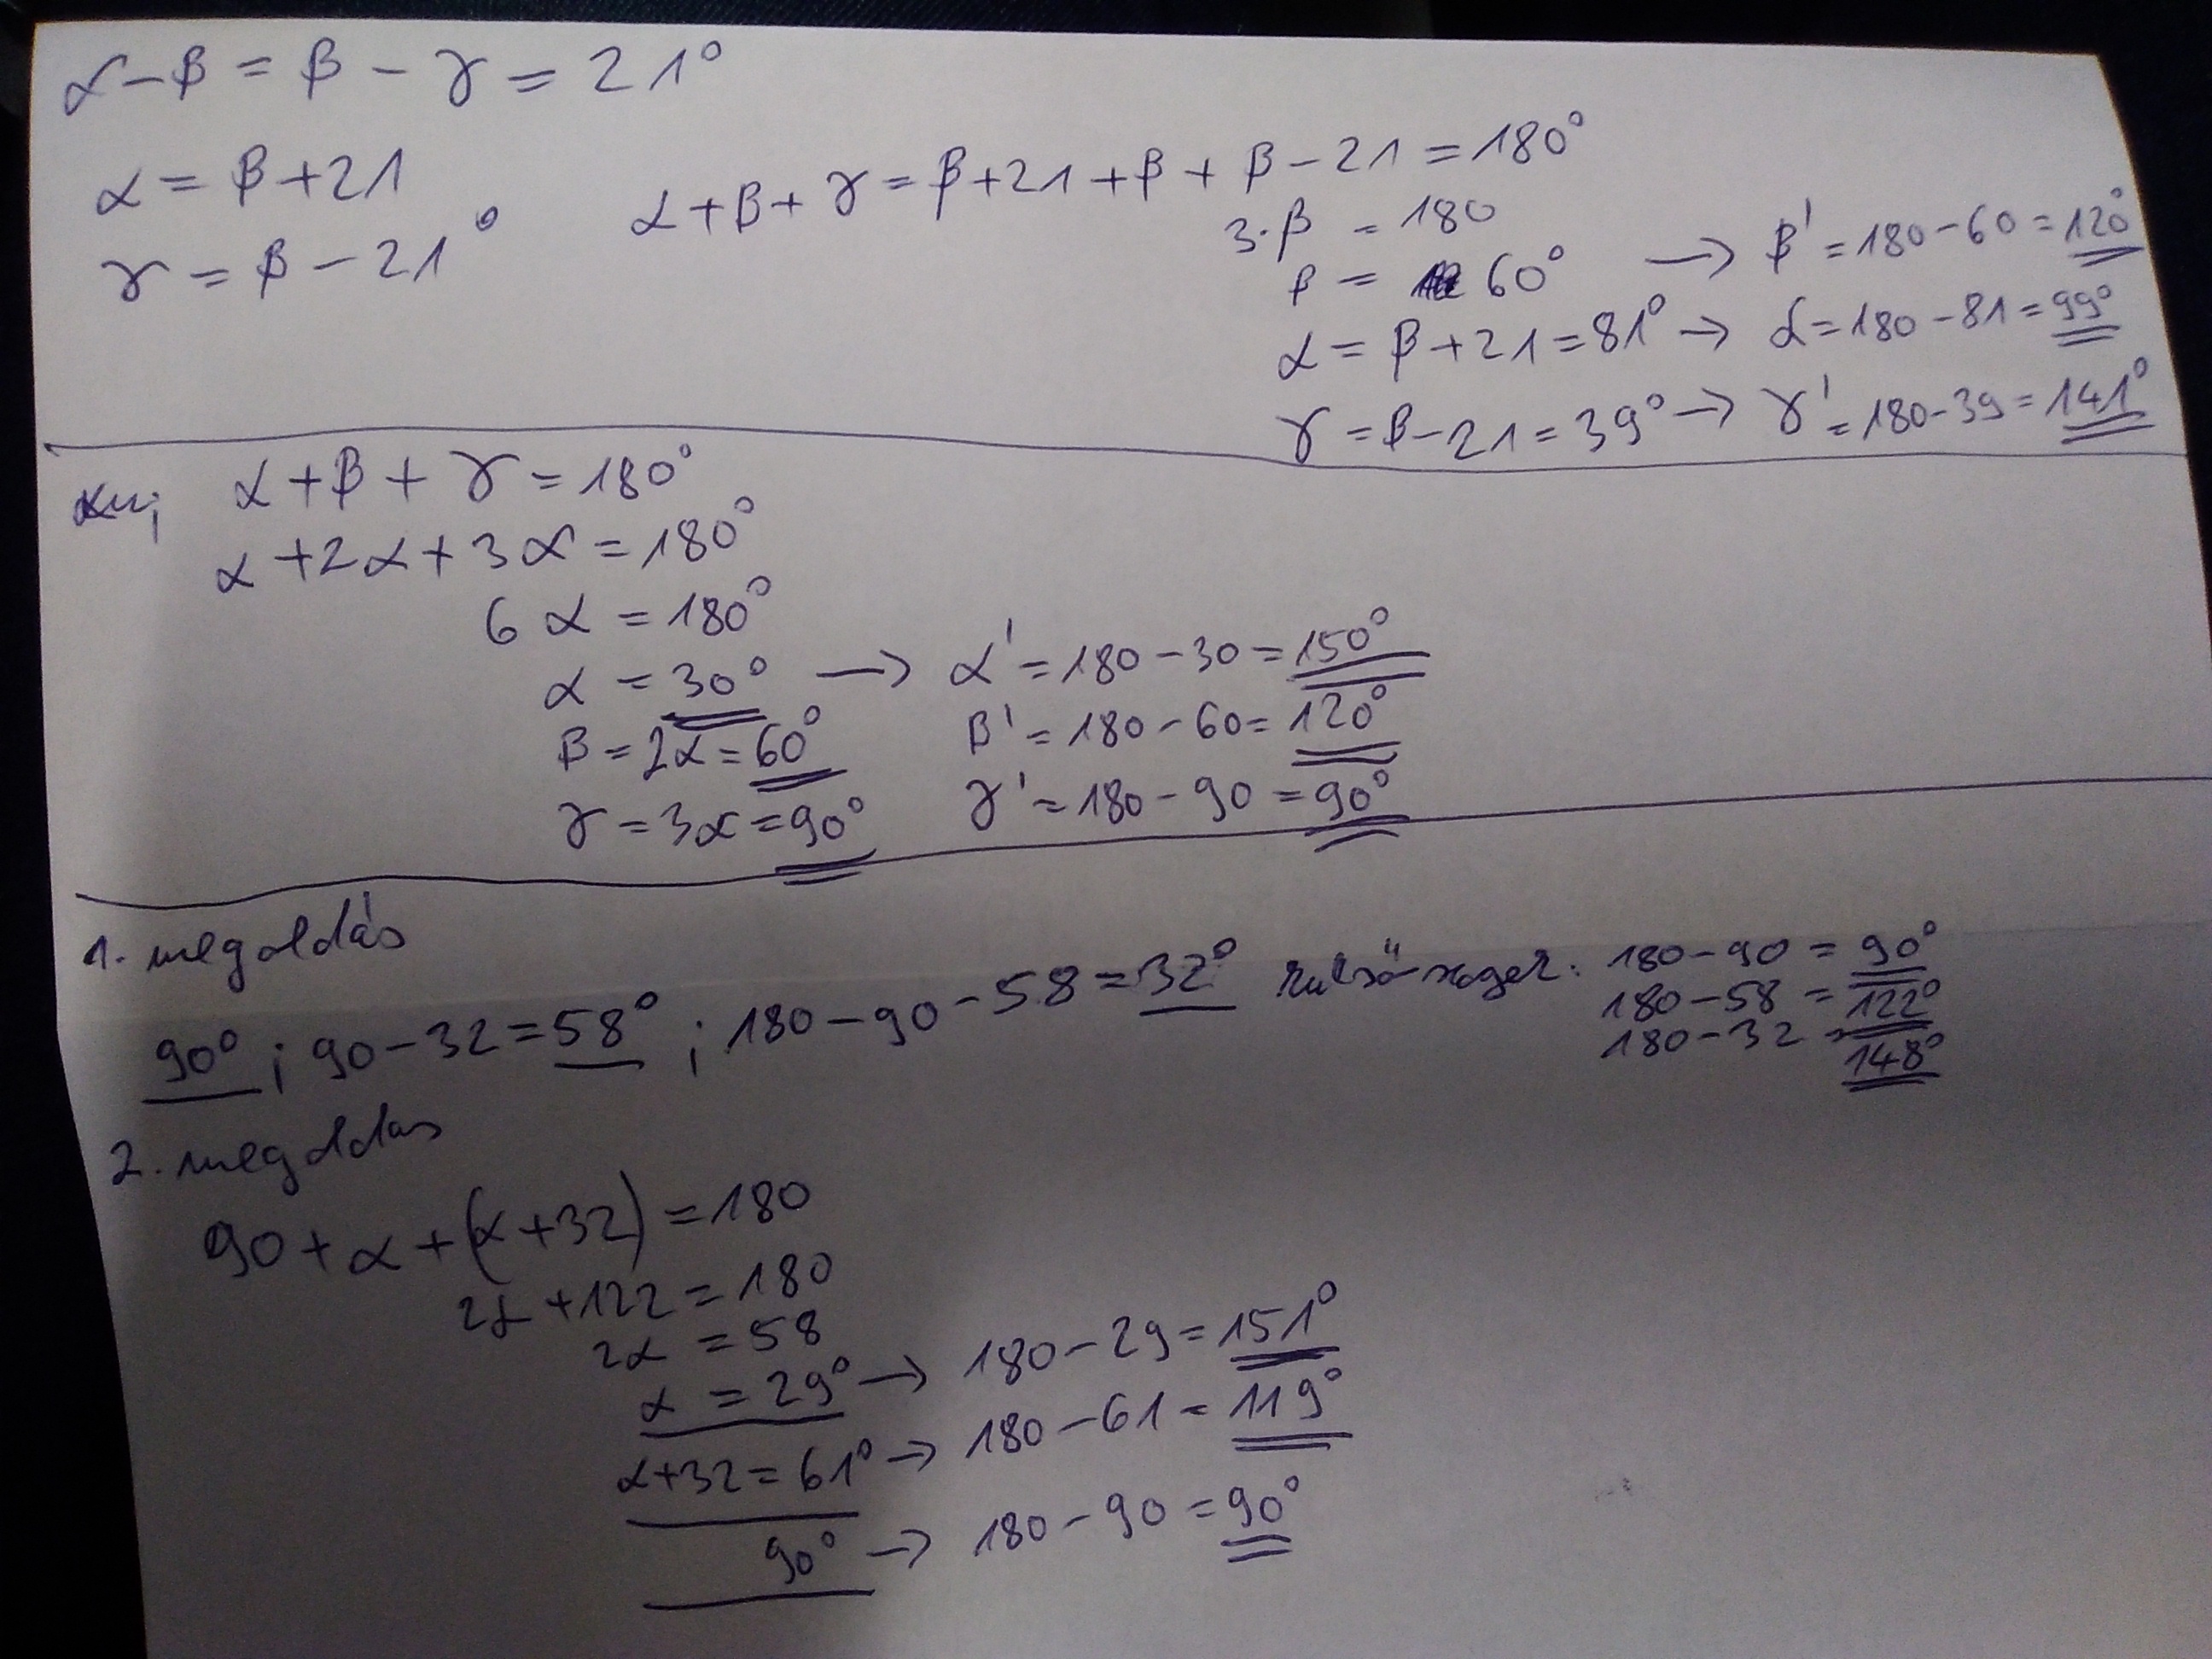 α-β = β - γ = 21°
α = β+21
γ = β-21°
α+β+γ = β+21+β+β-21 = 180°
3·β = 180
β = 60° → β' = 180-60 = 120°
α = β+21 = 81° → α = 180-81 = 99°
γ = β-21 = 39° → γ' = 180-39 = 141°
α+β+γ = 180°
α+2α+3α = 180°
6α = 180°
α = 30° → α' = 180-30 = 150°
β = 2α = 60° β' = 180-60 = 120°
γ = 3α = 90° γ' = 180-90 = 90°
1. megoldás
90° ; 90-32 = 58° ; 180-90-58 = 32° külső szögek: 180-90 = 90°
180-58 = 122°
180-32 = 148°
2. megoldas
90+α+(α+32) = 180
2α+122 = 180
2α = 58
α = 29° → 180-29 = 151°
α+32 = 61° → 180-61 = 119°
90° → 180-90 = 90°